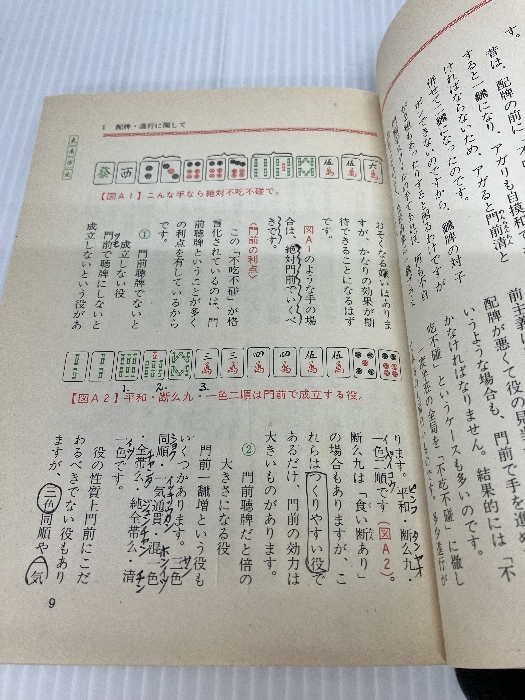 1 配牌・進行に関して
【図A1】こんな手なら絶対不吃不碰で。
おそくなる嫌いはありま
すが、かなりの効果が期
待できることになるはず
です。
図A1のような手の場
合は、絶対門前でいくべ
きです。
〈門前の利点〉
この「不吃不碰」が格
言化されているのは、門
前聴牌ということが多く
の利点を有しているから
です。
① 門前聴牌でないと
成立しない役
門前で聴牌にしないと
成立しないという役があ
1. 2. 3.
【図A2】平和・断么九・一色二順は門前で成立する役。
ります。平和・断么九・
一色二順です(図A2)。
断么九は「食い断あり」
の場合もありますが、こ
れらはつくりやすい役で
あるだけ、門前の効力は
大きいものがあります。
② 門前聴牌だと倍の
大きさになる役
門前一飜増という役も
いくつかあります。三色
同順・一気通貫・混一色
・全帯么・純全帯么・清
一色です。
役の性質上門前にこだ
わるべきでない役もあり
ますが、三色同順や一気
9
す。
昔は、配牌の前に
すると一飜になり、アガリも自摸和で
ければならないため、アガると門前清と
併せて二飜になったのです。
前主義に
配牌が悪くて役の見
いうような場合も、門前で手を進め
かなければなりません。結果的には「不
吃不碰」というケースも多いのです。